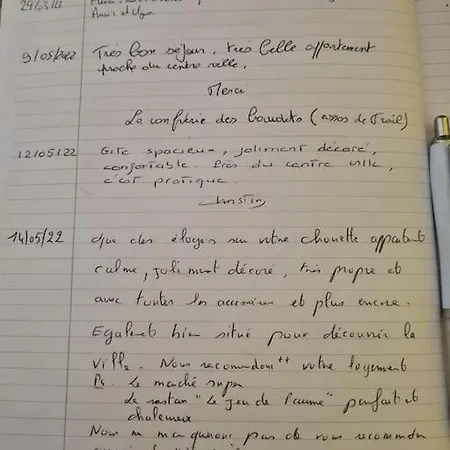 29/3/22
9/05/2022 Très bon séjour, très belle appartement
proche du centre ville.
Merci
La confrérie des baudets (assos de Trail)
12/05/22 Gite spacieux, joliment décoré,
confortable. Près du centre ville,
c'est pratique.
Christin
14/05/22 que des éloges sur votre chouette appartement
calme, joliment décoré, très propre et
avec toutes les accessoires et plus encore.
Egalement bien situé pour découvrir la
ville. Nous recommdons ++ votre logement
Ps. Le marché super
Le restau "Le jeu de Paume" parfait et
chaleureux
Nous ne manquerons pas de vous recommander